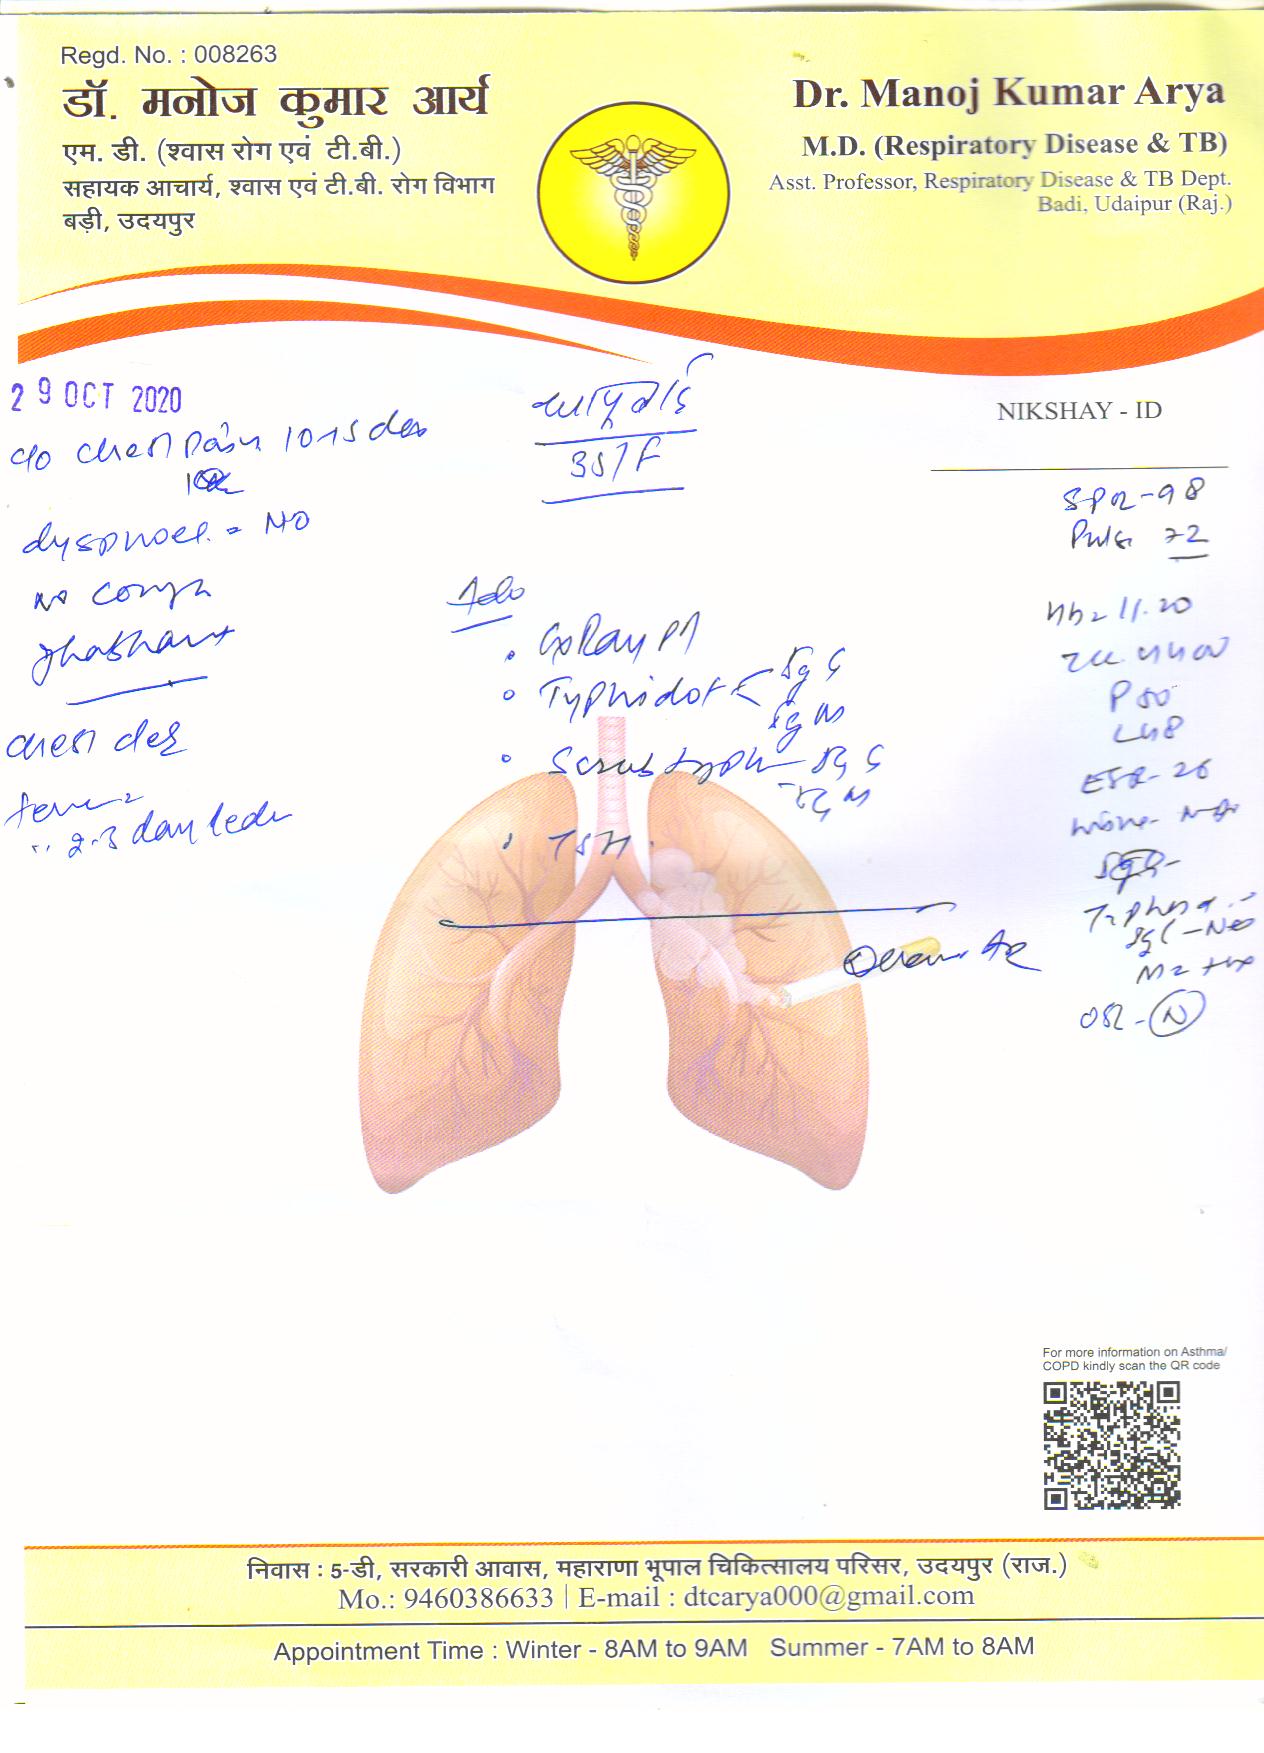 Regd. No. : 008263
डॉ. मनोज कुमार आर्य
एम. डी. (श्वास रोग एवं टी.बी.)
सहायक आचार्य, श्वास एवं टी.बी. रोग विभाग
बड़ी, उदयपुर
Dr. Manoj Kumar Arya
M.D. (Respiratory Disease & TB)
Asst. Professor, Respiratory Disease & TB Dept.
Badi, Udaipur (Raj.)
29 OCT 2020
NIKSHAY - ID
35/F
c/o chest pain 10-15 das
dyspnoea = NO
no cough
ghabharat
chest
2-3 day
Adv
PA
Typhidot IgG
IgM
Scrub typh IgG
IgM
TSH
SPO2-98
Puls 72
Hb = 11.20
P50
L48
ESR-26
IgG
M = +ve
N
For more information on Asthma/
COPD kindly scan the QR code
निवास : 5-डी, सरकारी आवास, महाराणा भूपाल चिकित्सालय परिसर, उदयपुर (राज.)
Mo.: 9460386633 | E-mail : dtcarya000@gmail.com
Appointment Time : Winter - 8AM to 9AM Summer - 7AM to 8AM